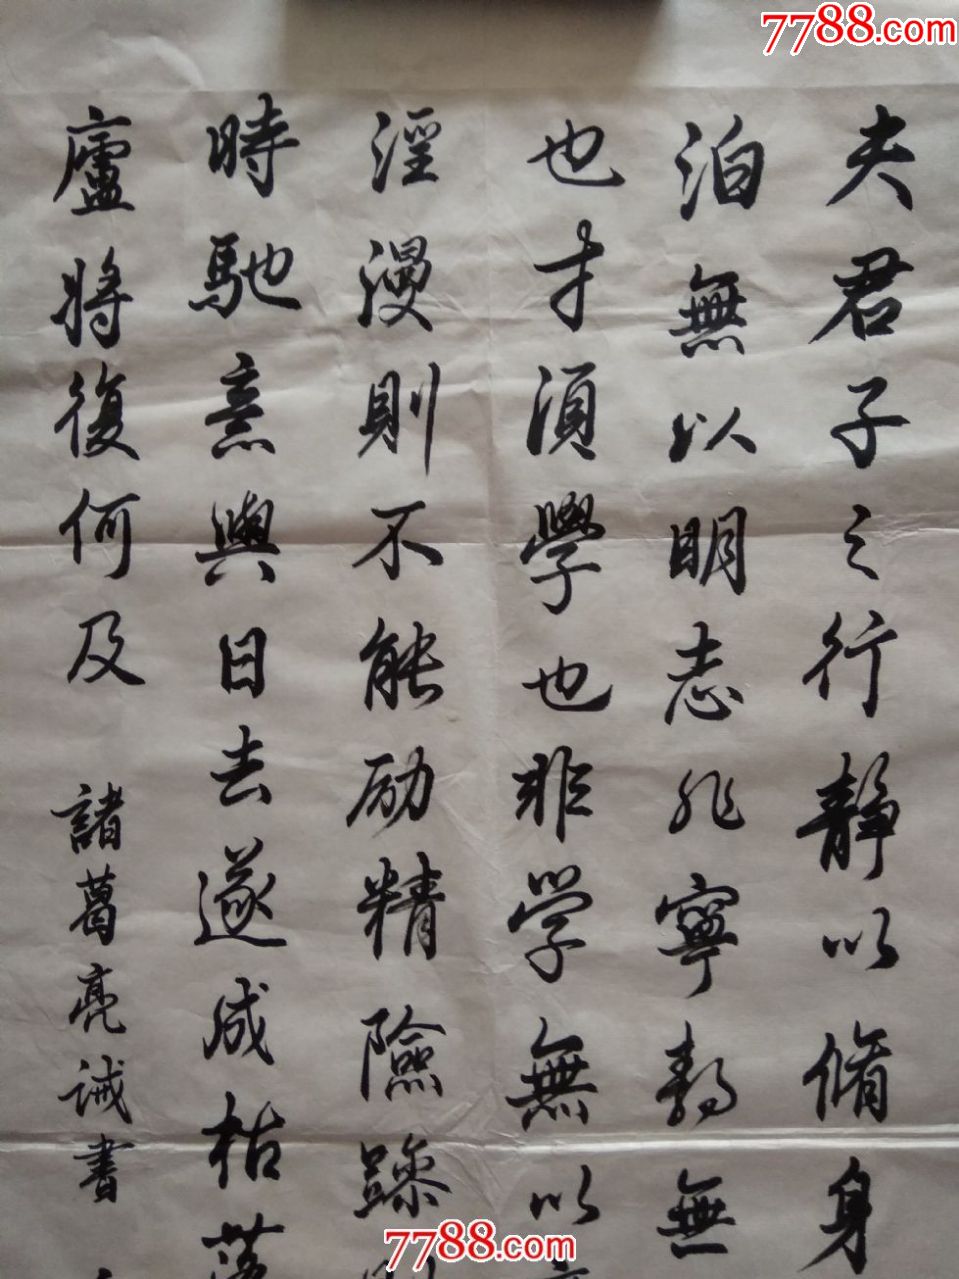 7788.com
夫君子之行静以脩身
泊無以明志非寧静無
也才須學也非学無以
淫漫則不能励精險躁則
時馳意與日去遂成枯落
廬將復何及
諸葛亮誡書
7788.com